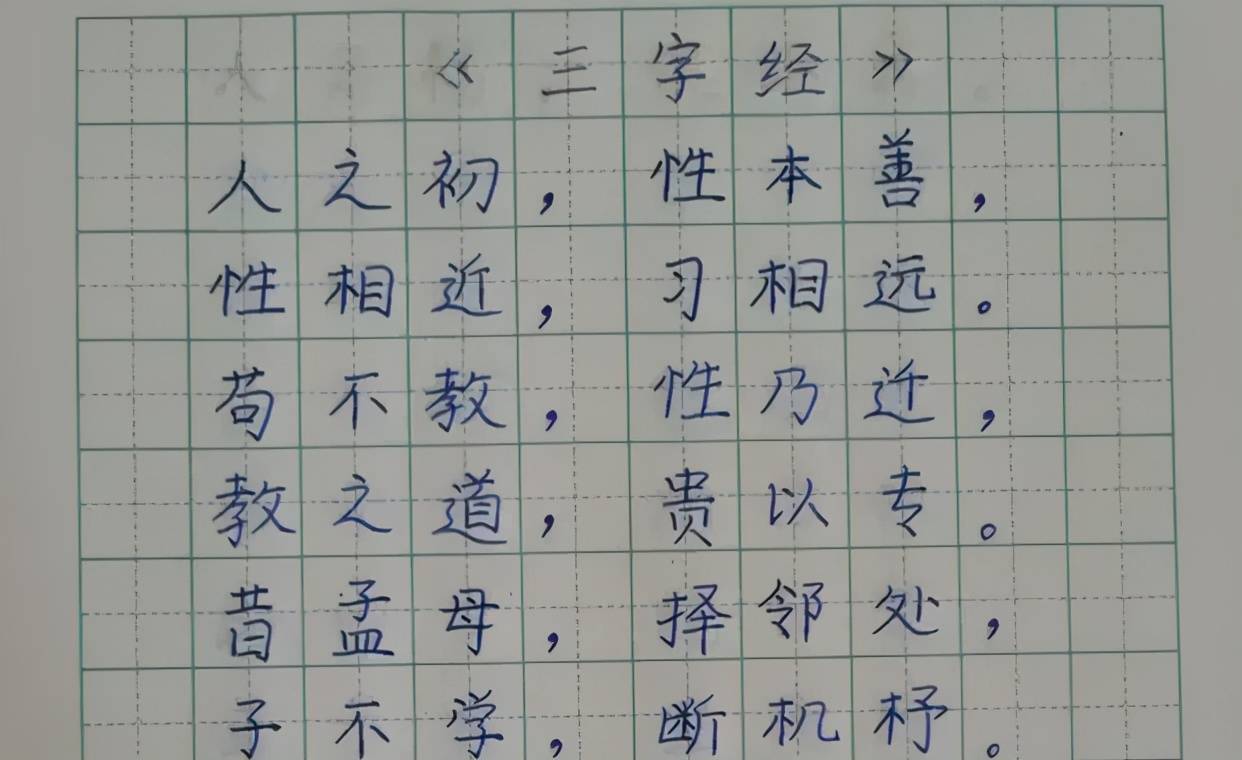 《三字经》
人之初，性本善，
性相近，习相远。
苟不教，性乃迁，
教之道，贵以专。
昔孟母，择邻处，
子不学，断机杼。